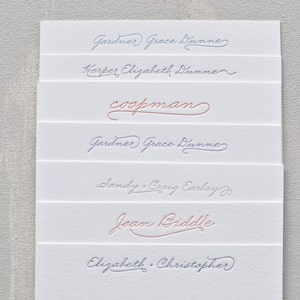 Gardner Grace Dunne
Harper Elizabeth Dunne
coopman
Gardner Grace Dunne
Sandy + Craig Earley
Joan Biddle
Elizabeth + Christopher